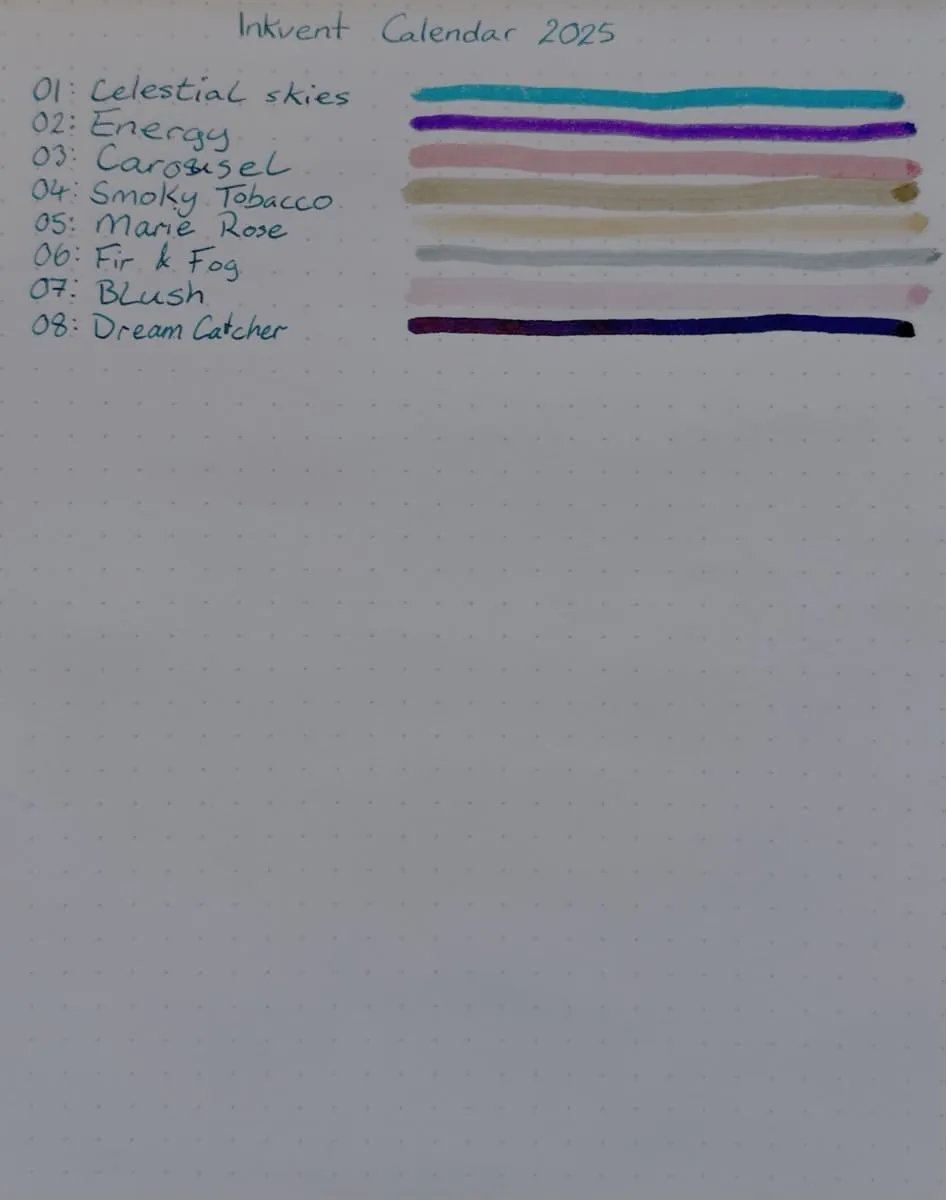 Inkvent Calendar 2025
01: Celestial skies
02: Energy
03: Carousel
04: Smoky Tobacco
05: Marie Rose
06: Fir & Fog
07: Blush
08: Dream Catcher